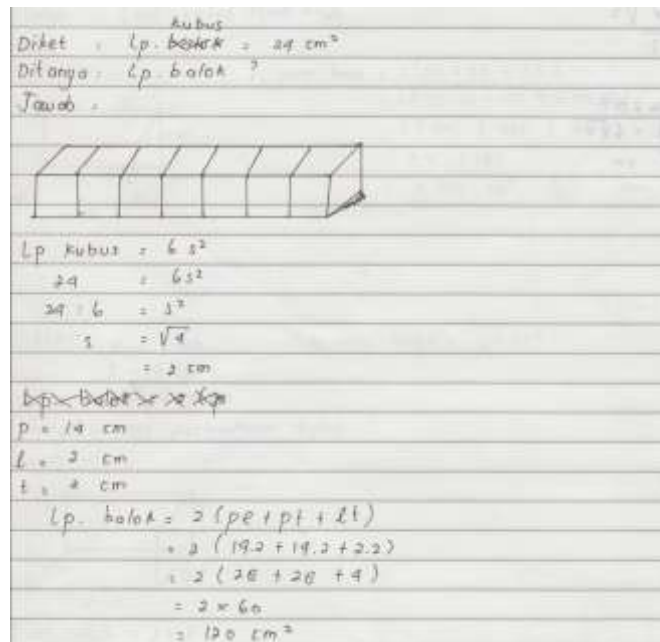 kubus
Diket : Lp. = 24 cm²
Ditanya : Lp. balok ?
Jawab :
Lp kubus = 6 s²
24 = 6s²
24 : 6 = s²
s = √4
= 2 cm
p = 14 cm
l = 2 cm
t = 2 cm
Lp. balok = 2 (pl + pt + lt)
= 2 (14.2 + 14.2 + 2.2)
= 2 (28 + 28 + 4)
= 2 × 60
= 120 cm²